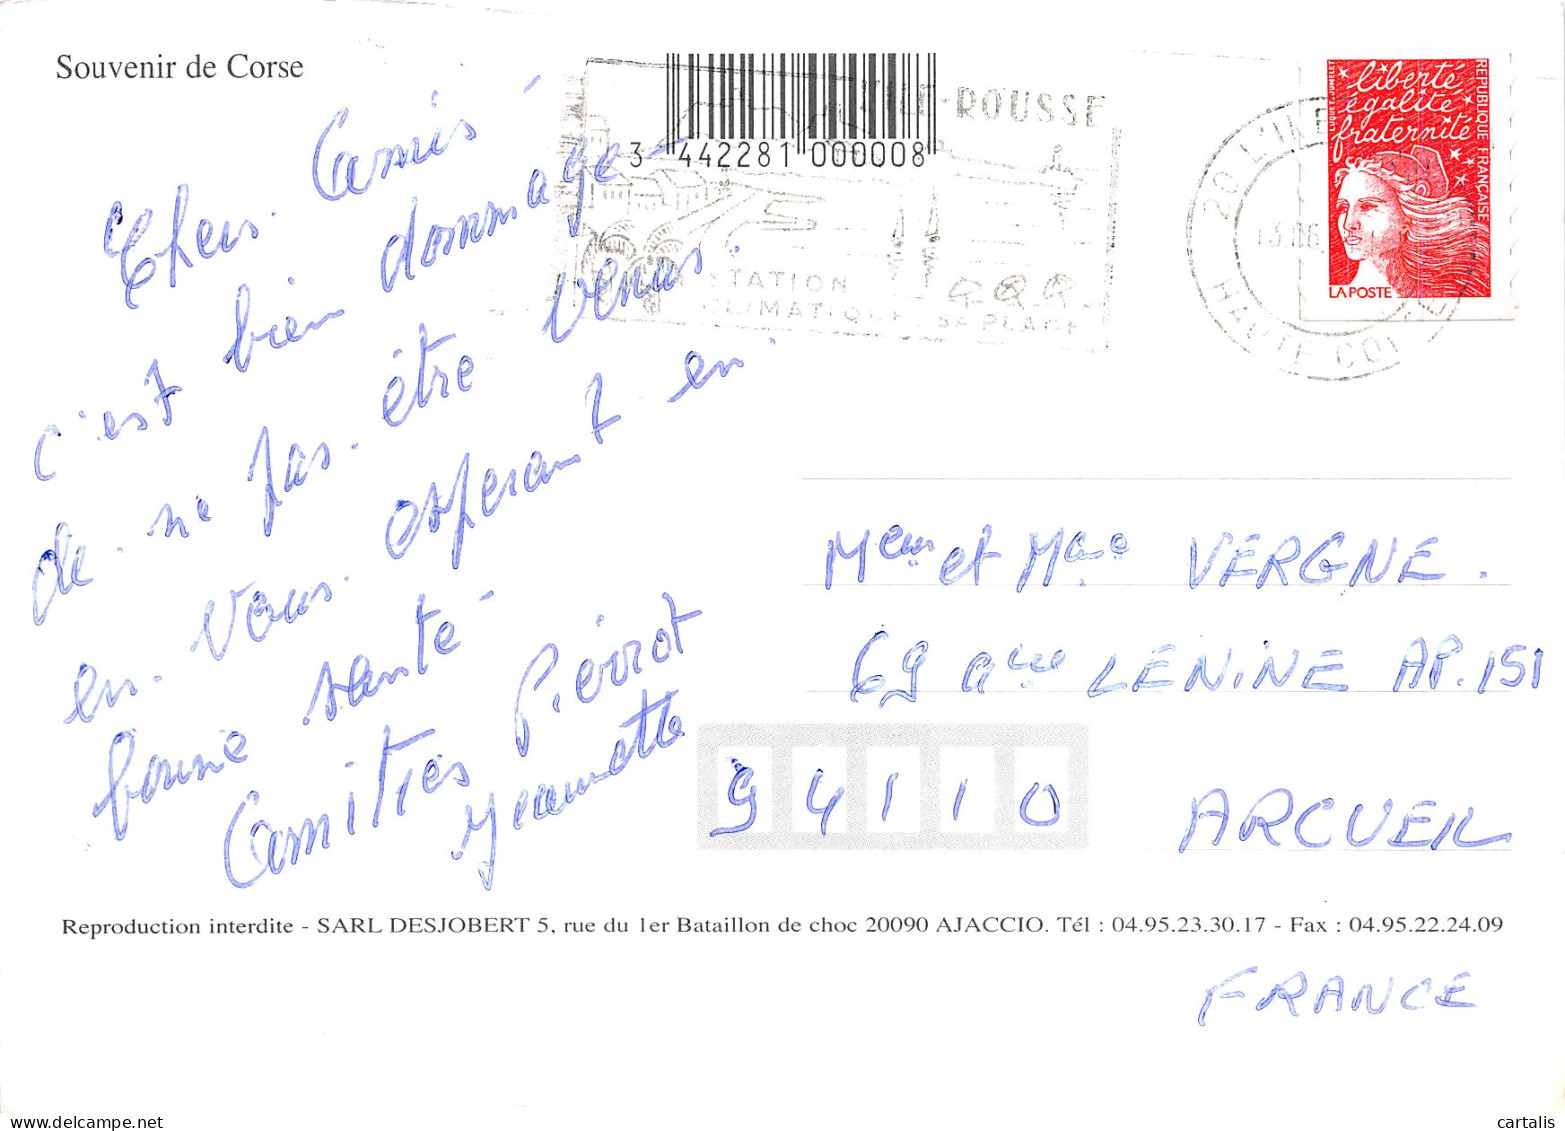 Souvenir de Corse
Chers Amis
c'est bien dommage
de ne pas être venus.
en vous espérant en
bonne santé
Amitiés Pierrot
Jeannette
3 442281 000008
L'ILE-ROUSSE
STATION
CLIMATIQUE SA PLAGE
20 L'ILE
HAUTE CORSE
liberté
égalité
fraternité
REPUBLIQUE FRANÇAISE
LA POSTE
Meur et Mme VERGNE.
69 ave LENINE AP.151
94110 ARCUEIL
Reproduction interdite - SARL DESJOBERT 5, rue du 1er Bataillon de choc 20090 AJACCIO. Tél : 04.95.23.30.17 - Fax : 04.95.22.24.09
FRANCE
www.cartalis.com